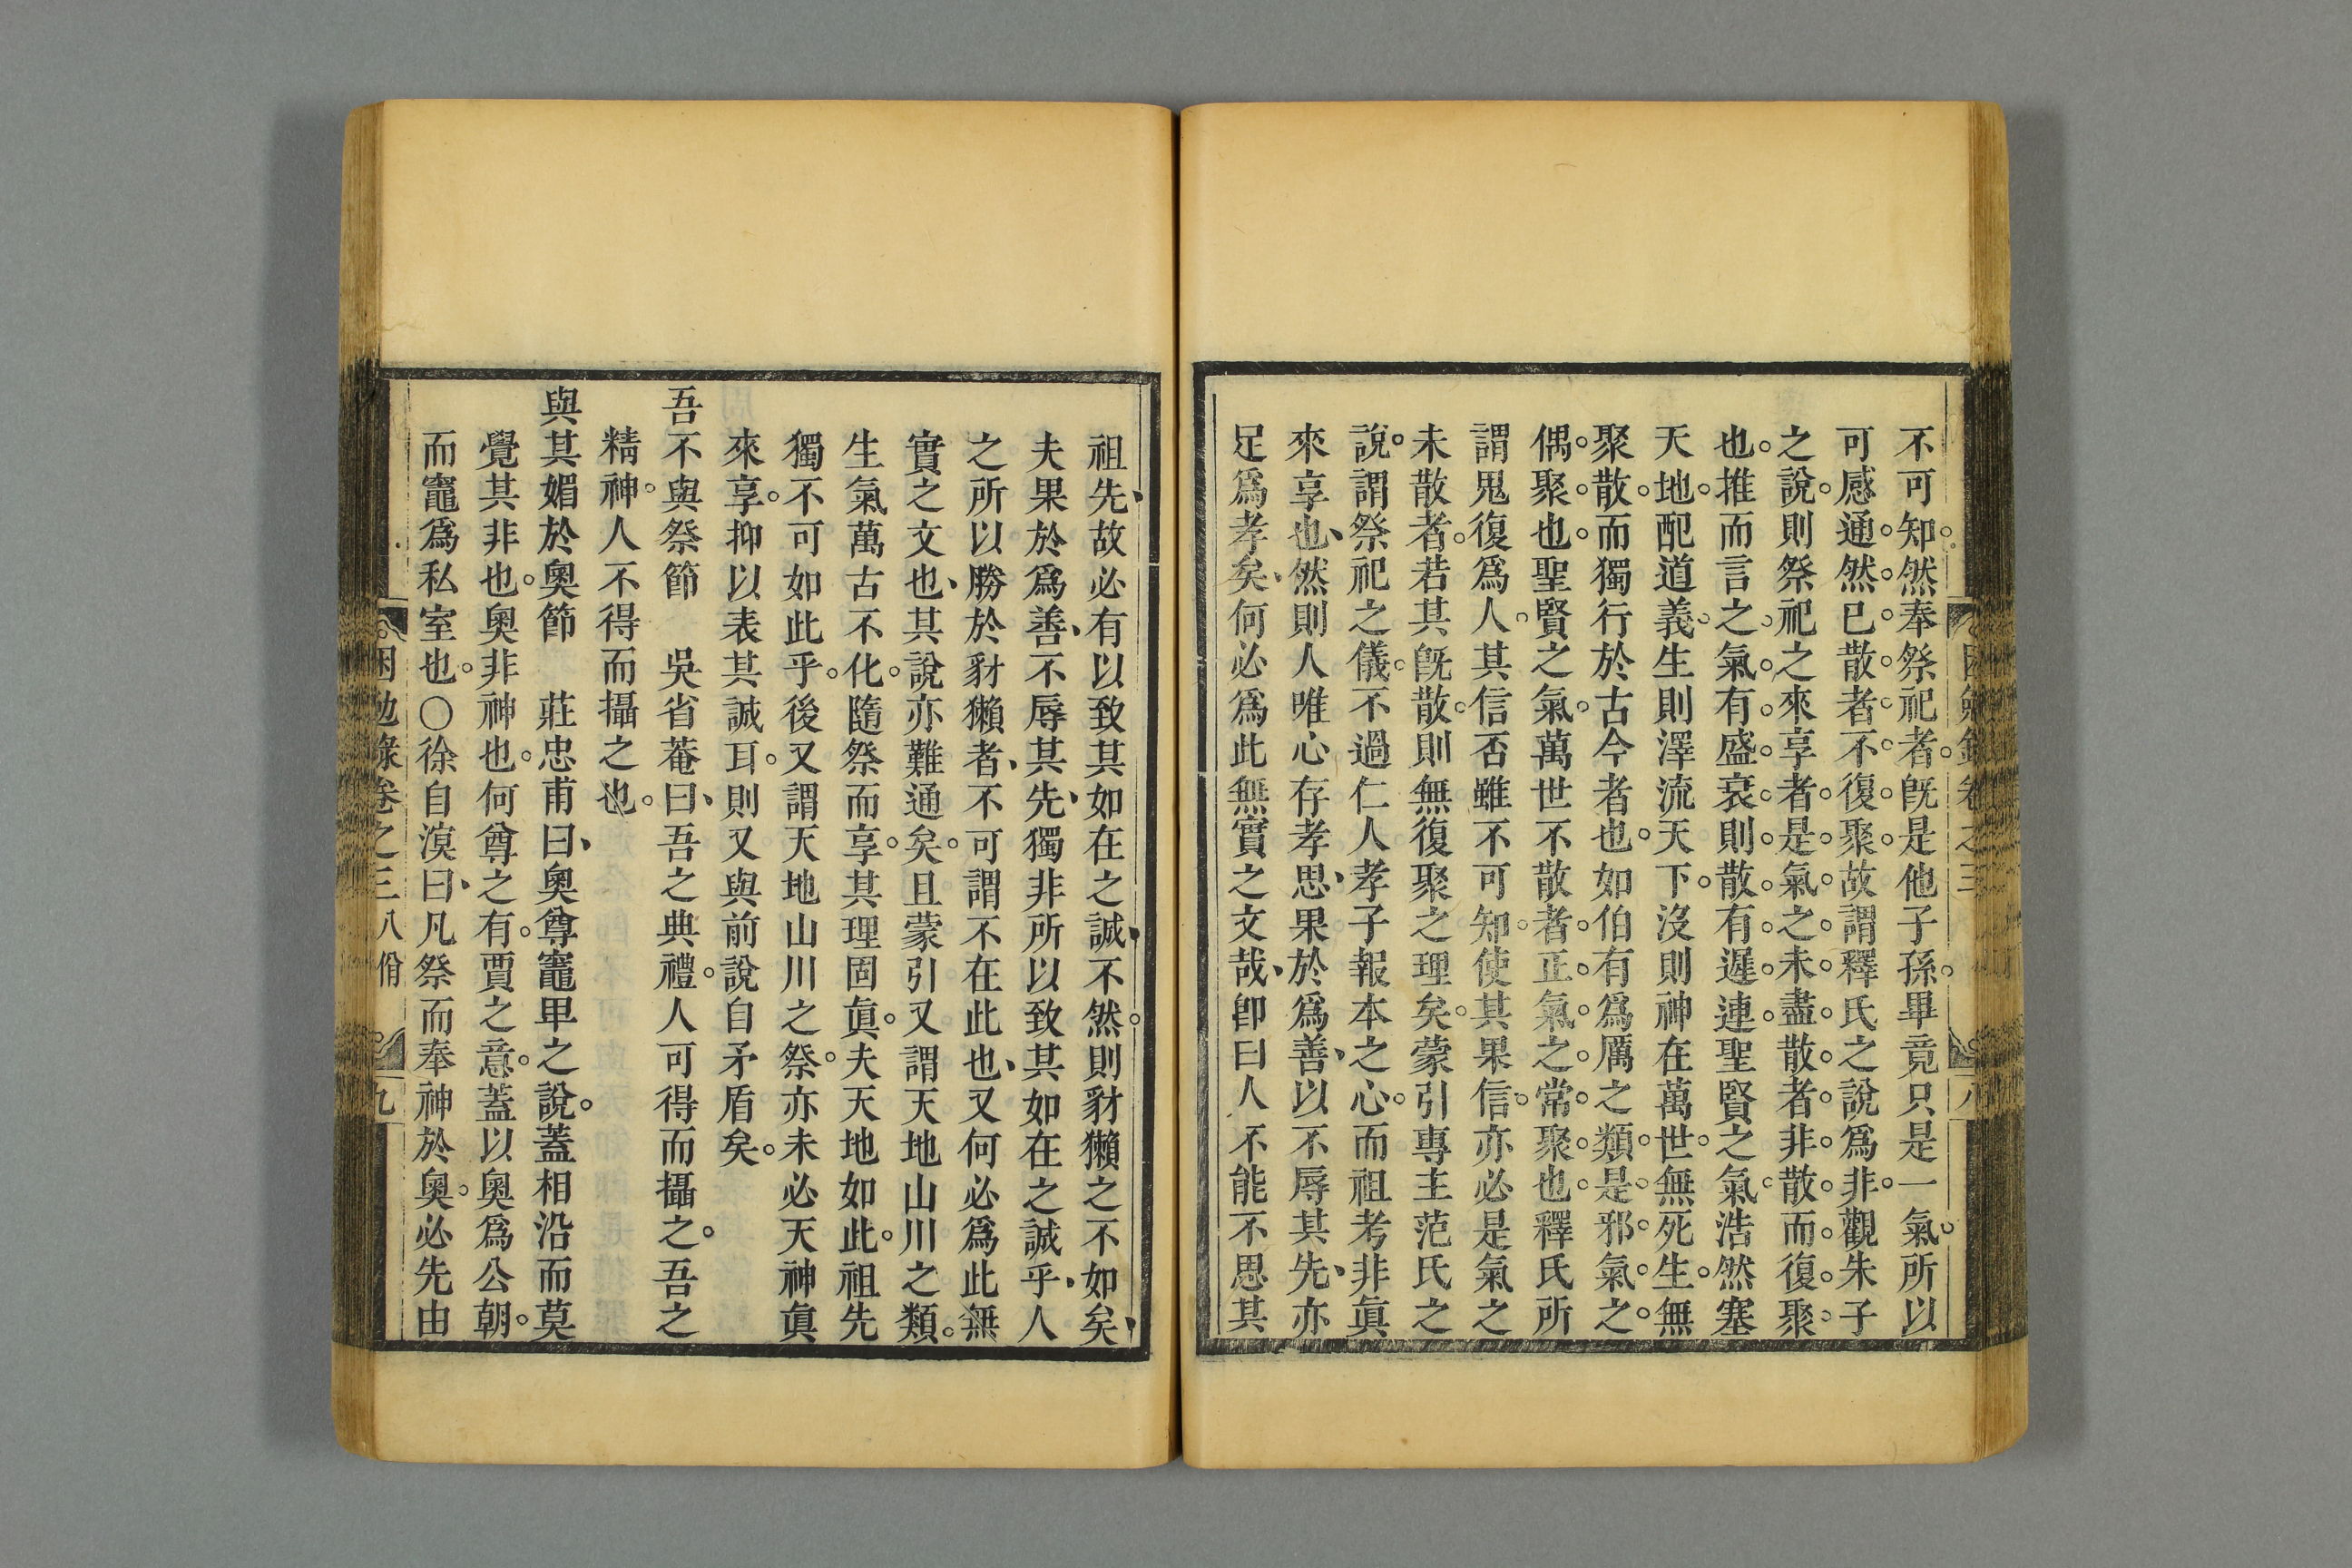 不可知然奉祭祀者旣是他子孫畢竟只是一氣所以
可感通然已散者不復聚故謂釋氏之說爲非觀朱子
之說則祭祀之來享者是氣之未盡散者非散而復聚
也推而言之氣有盛衰則散有遲連聖賢之氣浩然塞
天地配道義生則澤流天下沒則神在萬世無死生無
聚散而獨行於古今者也如伯有爲厲之類是邪氣之
偶聚也聖賢之氣萬世不散者正氣之常聚也釋氏所
謂鬼復爲人其信否雖不可知使其果信亦必是氣之
未散者若其旣散則無復聚之理矣蒙引專主范氏之
說謂祭祀之儀不過仁人孝子報本之心而祖考非眞
來享也然則人唯心存孝思果於爲善以不辱其先亦
足爲孝矣何必爲此無實之文哉卽曰人不能不思其
祖先故必有以致其如在之誠不然則豺獺之不如矣
夫果於爲善不辱其先獨非所以致其如在之誠乎人
之所以勝於豺獺者不可謂不在此也又何必爲此無
實之文也其說亦難通矣且蒙引又謂天地山川之類
生氣萬古不化隨祭而享其理固眞夫天地如此祖先
獨不可如此乎後又謂天地山川之祭亦未必天神眞
來享抑以表其誠耳則又與前說自矛盾矣
吾不與祭節　吳省菴曰吾之典禮人可得而攝之吾之
精神人不得而攝之也
與其媚於奧節　莊忠甫曰奧尊竈卑之說蓋相沿而莫
覺其非也奧非神也何尊之有賈之意蓋以奧爲公朝
而竈爲私室也○徐自溟曰凡祭而奉神於奧必先由
困勉錄卷之三 八佾 九